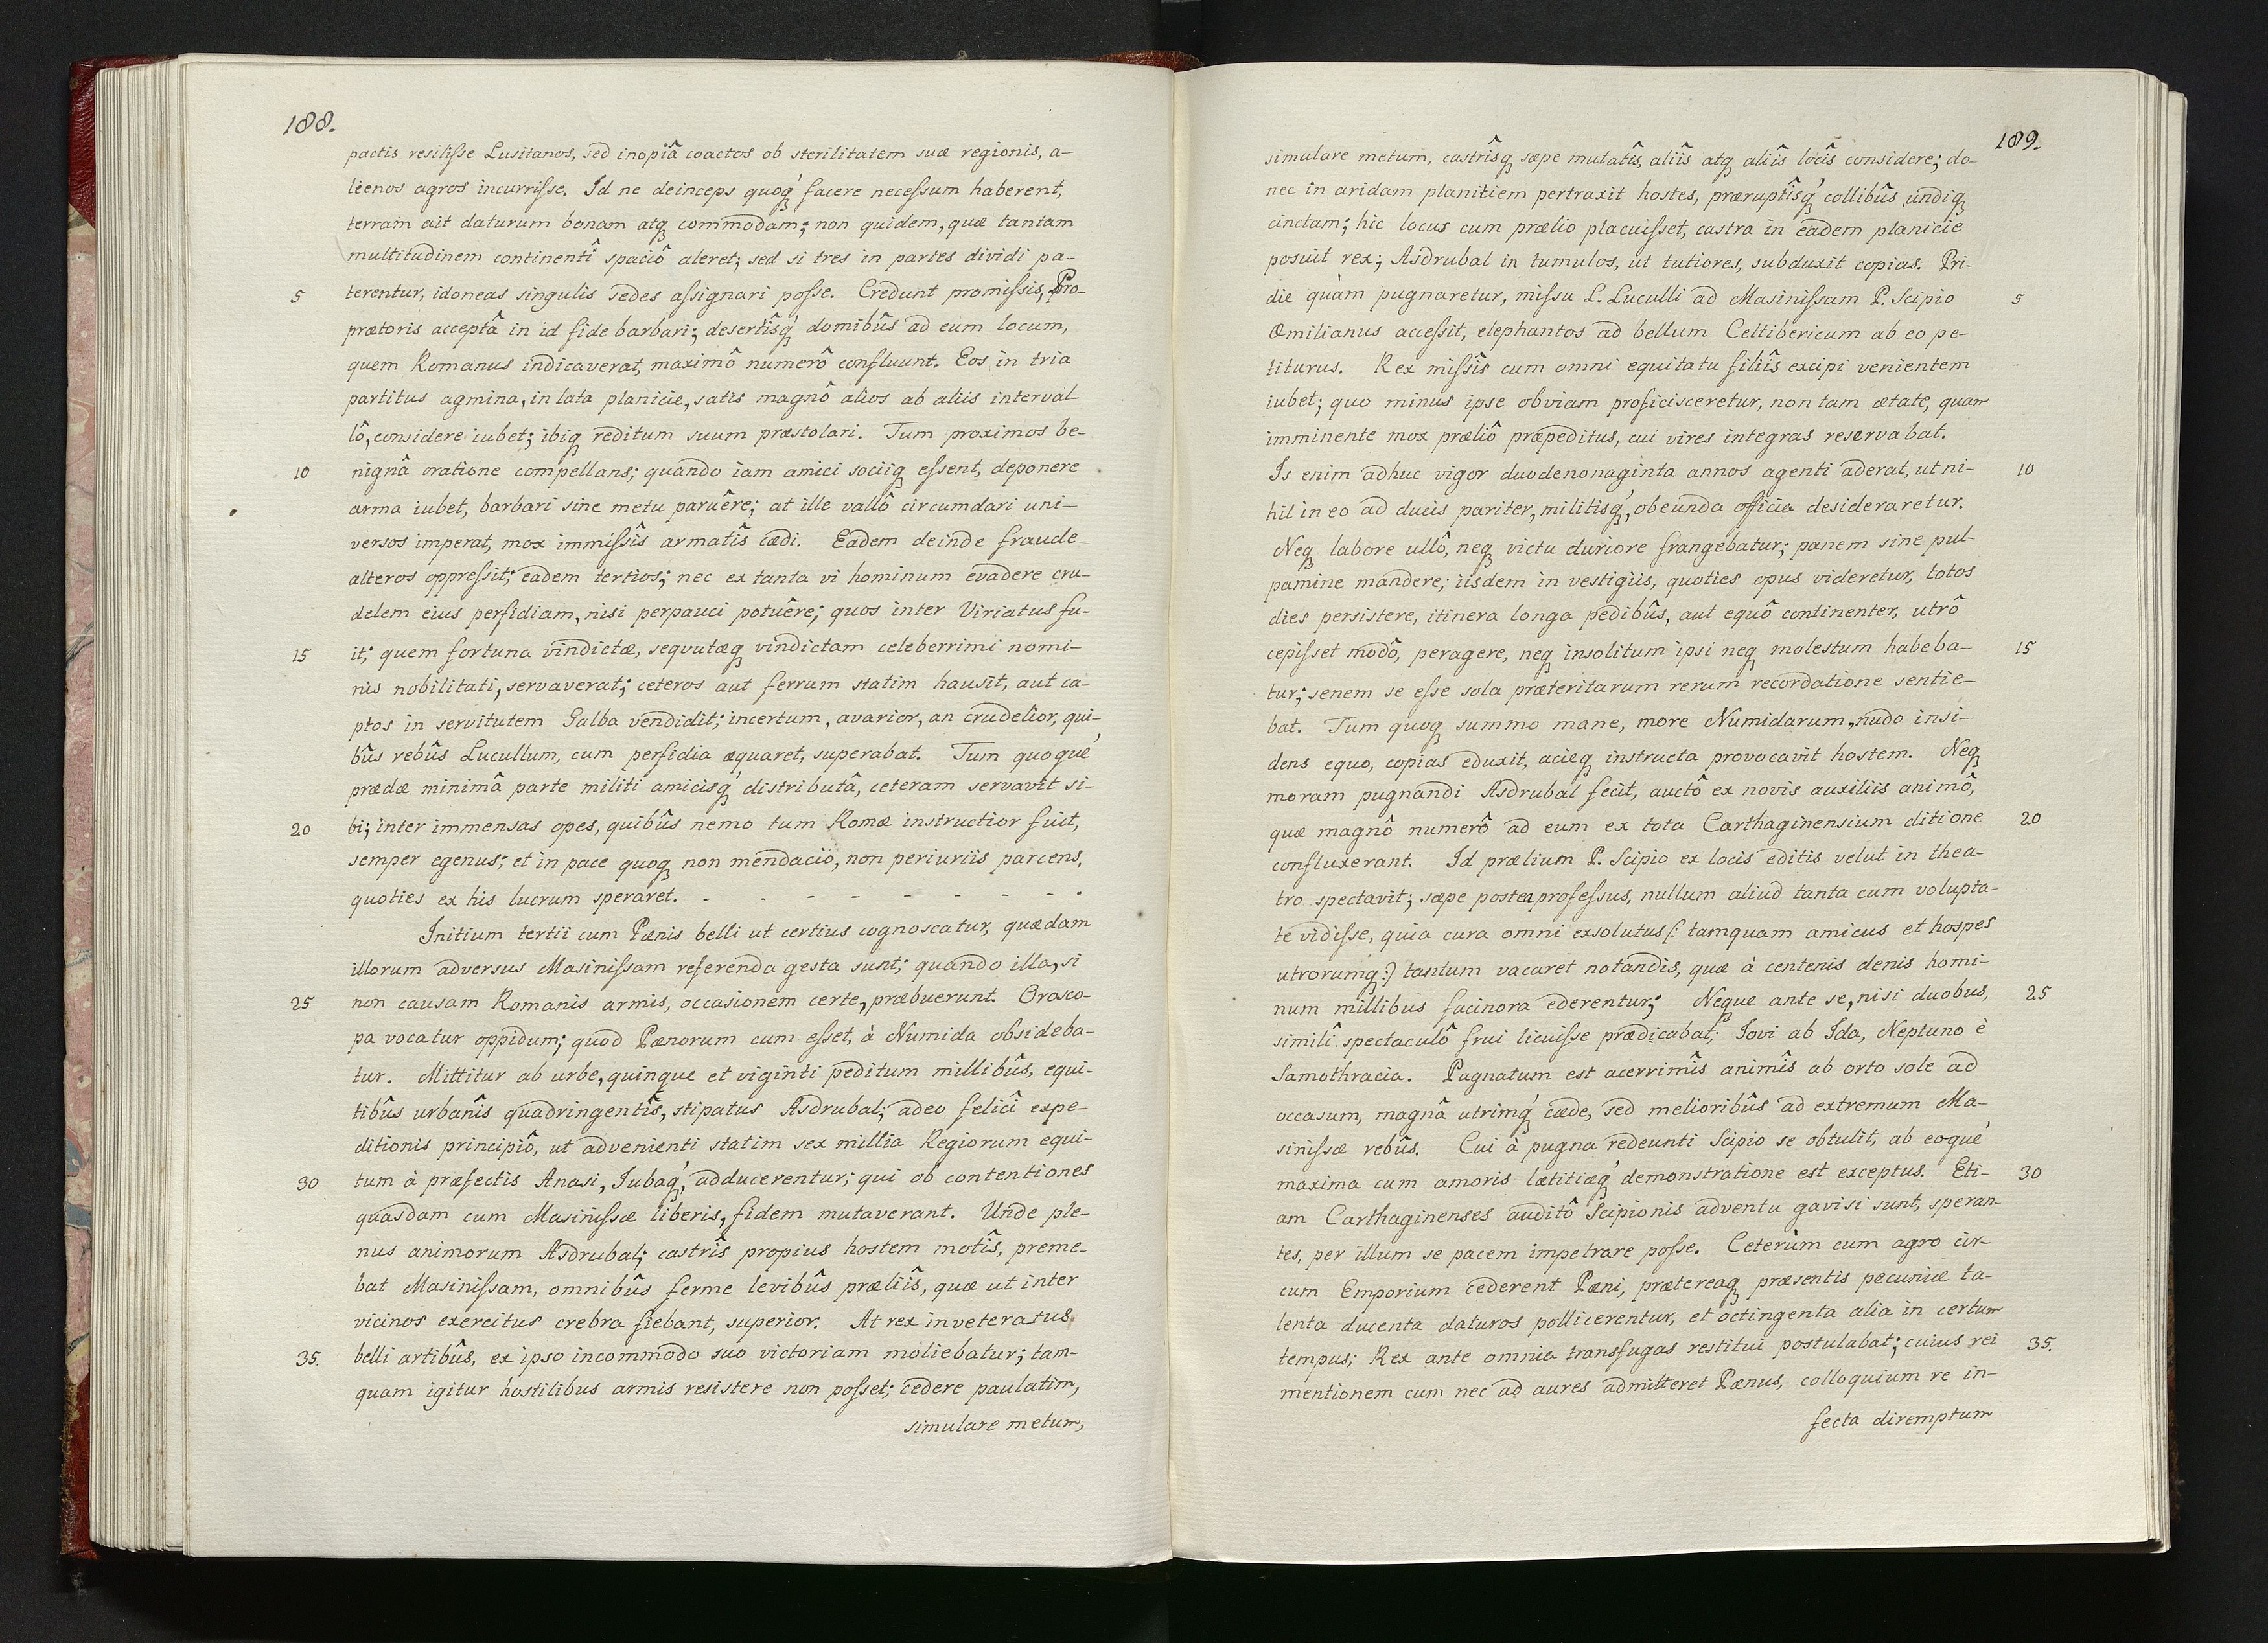 188.
pactis resiliſse Lusitanos, sed inopiâ coactos ob sterilitatem suæ regionis, a-
lienos agros incurriſse. Id ne deinceps quoqꝫ́ facere neceſsum haberent,
terram ait daturum bonam atqꝫ commodam; non quidem, quæ tantam
multitudinem continentî spaciô aleret; sed si tres in partes dividi pa-
5 terentur, idoneas singulis sedes aſsignari poſse. Credunt promiſsis, Pro-
prætoris acceptâ in id fide barbari; desertîsqꝫ́ domibûs ad eum locum,
quem Romanus indicaverat, maximô numerô confluunt. Eos in tria
partitus agmina, in lata planicie, satis magnô alios ab aliis interval
lô, considere iubet; ibiqꝫ reditum suum præstolari. Tum proximos be-
10 nignâ oratione compellans; quando iam amici sociiqꝫ eſsent, deponere
arma iubet, barbari sine metu paruêre; at ille vallô circumdari uni-
versos imperat, mox immiſsîs armatîs cædi. Eadem deinde fraude
alteros oppreſsit; eadem tertios; nec ex tanta vi hominum evadere cru-
delem eius perfidiam, nisi perpauci potuêre; quos inter Viriatus fu-
15 it; quem fortuna vindictæ, seqvutæqꝫ vindictam celeberrimi nomi-
nis nobilitati, servaverat; ceteros aut ferrum statim hausit, aut ca-
ptos in servitutem Galba vendidit; incertum, avarior, an crudelior, qui-
bûs rebûs Lucullum, cum perfidia æquaret, superabat. Tum quoqué
prædæ minimâ parte militi amicisqꝫ́ distributâ, ceteram servavit si-
20 bi; inter immensas opes, quibûs nemo tum Romæ instructior fuit,
semper egenus; et in pace quoqꝫ non mendacio, non periuriis parcens,
quoties ex his lucrum speraret. - - - - - - - - .
Initium tertii cum Pænis belli ut certius cognoscatur, quædam
illorum adversus Masiniſsam referenda gesta sunt; quando illa, si
25 non causam Romanis armis, occasionem certe, præbuerunt. Orosco-
pa vocatur oppidum; quod Pænorum cum eſset, à Numida obsideba-
tur. Mittitur ab urbe, quinque et viginti peditum millibûs, equi-
tibûs urbanîs quadringentîs, stipatus Asdrubal; adeo felicî expe-
ditionis principiô, ut advenienti statim sex millia Regiorum equi-
30 tum à præfectis Anasi, Iubaqꝫ́, adducerentur; qui ob contentiones
quasdam cum Masiniſsæ liberis, fidem mutaverant. Unde ple-
nus animorum Asdrubal; castrîs propius hostem motîs, preme-
bat Masiniſsam, omnibûs ferme levibûs præliîs, quæ ut inter
vicinos exercitus crebra fiebant, superior. At rex inveteratus
35. belli artibûs, ex ipso incommodo suo victoriam moliebatur; tam-
quam igitur hostilibus armis resistere non poſset; cedere paulatim,
simulare metum,
189.
simulare metum, castrîsqꝫ sæpe mutatîs, aliîs atqꝫ aliîs locîs considere; do-
nec in aridam planitiem pertraxit hostes, præruptîsqꝫ́ collibûs undiqꝫ
cinctam; hic locus cum prælio placuiſset, castra in eadem planicie
posuit rex; Asdrubal in tumulos, ut tutiores, subduxit copias. Pri-
5 die quàm pugnaretur, missu L. Luculli ad Masiniſsam P. Scipio
Æmilianus acceſsit, elephantos ad bellum Celtibericum ab eo pe-
titurus. Rex miſsîs cum omni equitatu filiîs excipi venientem
iubet; quo minus ipse obviam proficisceretur, non tam ætate, quam
imminente mox præliô præpeditus, cui vires integras reservabat.
10 Is enim adhuc vigor duodenonaginta annos agenti aderat, ut ni-
hil in eo ad ducis pariter, militisqꝫ́, obeunda officia desideraretur.
Neqꝫ labore ullô, neqꝫ victu duriore frangebatur; panem sine pul-
pamine mandere; iisdem in vestigiis, quoties opus videretur, totos
dies persistere, itinera longa pedibûs, aut equô continenter, utrô
15 cepiſset modô, peragere, neqꝫ insolitum ipsi neqꝫ molestum habeba-
tur; senem se eſse sola præteritarum rerum recordatione sentie-
bat. Tum quoqꝫ summo mane, more Numidarum, nudo insi-
dens equo, copias eduxit, acieqꝫ instructa provocavit hostem. Neqꝫ
moram pugnandi Asdrubal fecit, auctô ex novis auxiliis animô,
20 quæ magnô numerô ad eum ex tota Carthaginensium ditione
confluxerant. Id prælium P. Scipio ex locis editis velut in thea-
tro spectavit; sæpe postea profeſsus, nullum aliud tanta cum volupta-
te vidiſse, quia cura omni exsolutus (: tamquam amicus et hospes
utrorumqꝫ :) tantum vacaret notandis, quæ à centenis denis homi-
25 num millibus facinora ederentur; Neque ante se, nisi duobus,
similî spectaculô frui licuiſse prædicabat; Iovi ab Ida, Neptuno è
Samothracia. Pugnatum est acerrimîs animîs ab orto sole ad
occasum, magnâ utrimqꝫ́ cæde, sed melioribûs ad extremum Ma-
siniſsæ rebûs. Cui à pugna redeunti Scipio se obtulit, ab eoqué
30 maxima cum amoris lætitiæqꝫ́ demonstratione est exceptus. Eti-
am Carthaginenses auditô Scipionis adventu gavisi sunt, speran-
tes, per illum se pacem impetrare poſse. Ceterùm cum agro cir-
cum Emporium cederent Pæni, prætereaqꝫ præsentis pecuniæ ta-
lenta ducenta daturos pollicerentur, et octingenta alia in certum
35. tempus; Rex ante omnia transfugas restitui postulabat; cuius rei
mentionem cum nec ad aures admitteret Pænus, colloquium re in-
fecta diremptum